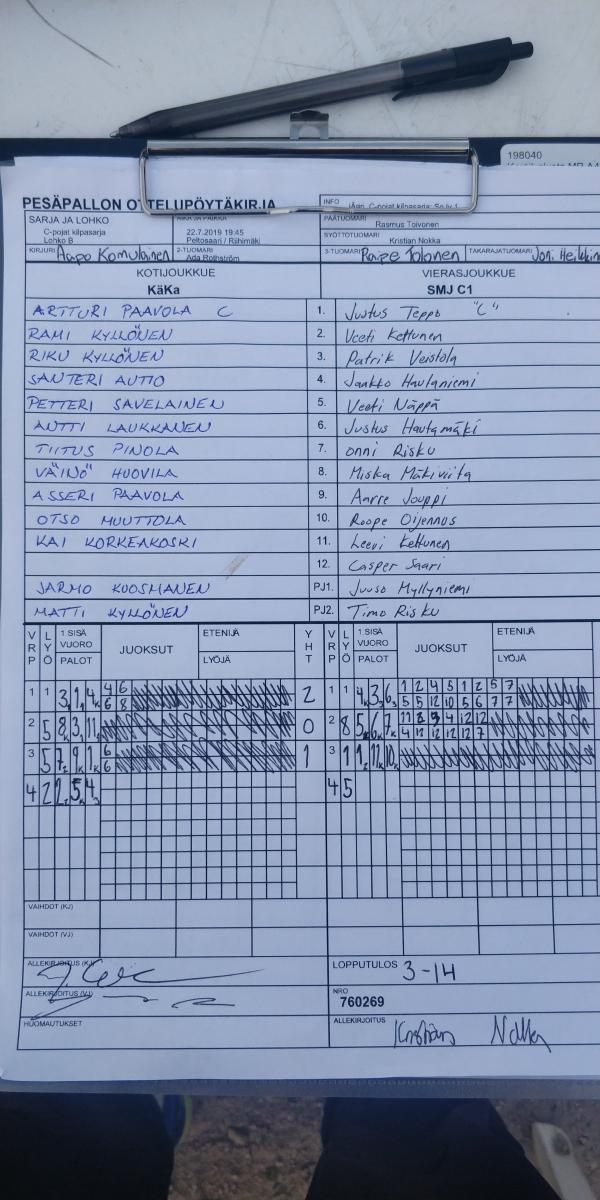 198040
PESÄPALLON OTTELUPÖYTÄKIRJA
INFO
SARJA JA LOHKO
C-pojat kilpasarja
Lohko B
AIKA JA PAIKKA
22.7.2019 19:45
Peltosaari / Riihimäki
PÄÄTUOMARI
Rasmus Toivonen
SYÖTTÖTUOMARI
Kristian Nokka
KIRJURI Aapo Komulainen
2-TUOMARI
Ada Rothström
3-TUOMARI Roipe Tolonen
TAKARAJATUOMARI Joni
KOTIJOUKKUE VIERASJOUKKUE
KäKa SMJ C1
ARTTURI PAAVOLA C 1. Justus Teppo "C"
RAMI KYLLÖNEN 2. Veeti Kettunen
RIKU KYLLÖNEN 3. Patrik Veistola
SANTERI AUTIO 4. Jaakko Hautaniemi
PETTERI SAVELAINEN 5. Veeti Näppä
ANTTI LAUKKANEN 6. Justus Hautamäki
TIITUS PINOLA 7. Onni Risku
VÄINÖ HUOVILA 8. Miska Mäkiviita
ASSERI PAAVOLA 9. Aarre Jouppi
OTSO MUUTTOLA 10. Roope Oijennus
KAI KORKEAKOSKI 11. Leevi Kettunen
12. Casper Saari
JARMO KUOSMANEN PJ1. Juuso Myllyniemi
MATTI KYLLÖNEN PJ2. Timo Risku
VRP LYÖ 1.SISÄ VUORO PALOT JUOKSUT ETENIJÄ LYÖJÄ YHT VRP LYÖ 1.SISÄ VUORO PALOT JUOKSUT ETENIJÄ LYÖJÄ
1 1 4 6 2 1 1 1 2 4 5 1 2 5 7
6 8 5 5 12 10 5 6 7 7
2 5 0 2 8
4 12 12 12 12 7
3 5 6 1 3 1
6
4 2 4 5
VAIHDOT (KJ)
VAIHDOT (VJ)
ALLEKIRJOITUS (KJ)
LOPPUTULOS 3-14
ALLEKIRJOITUS (VJ)
NRO
760269
HUOMAUTUKSET
ALLEKIRJOITUS